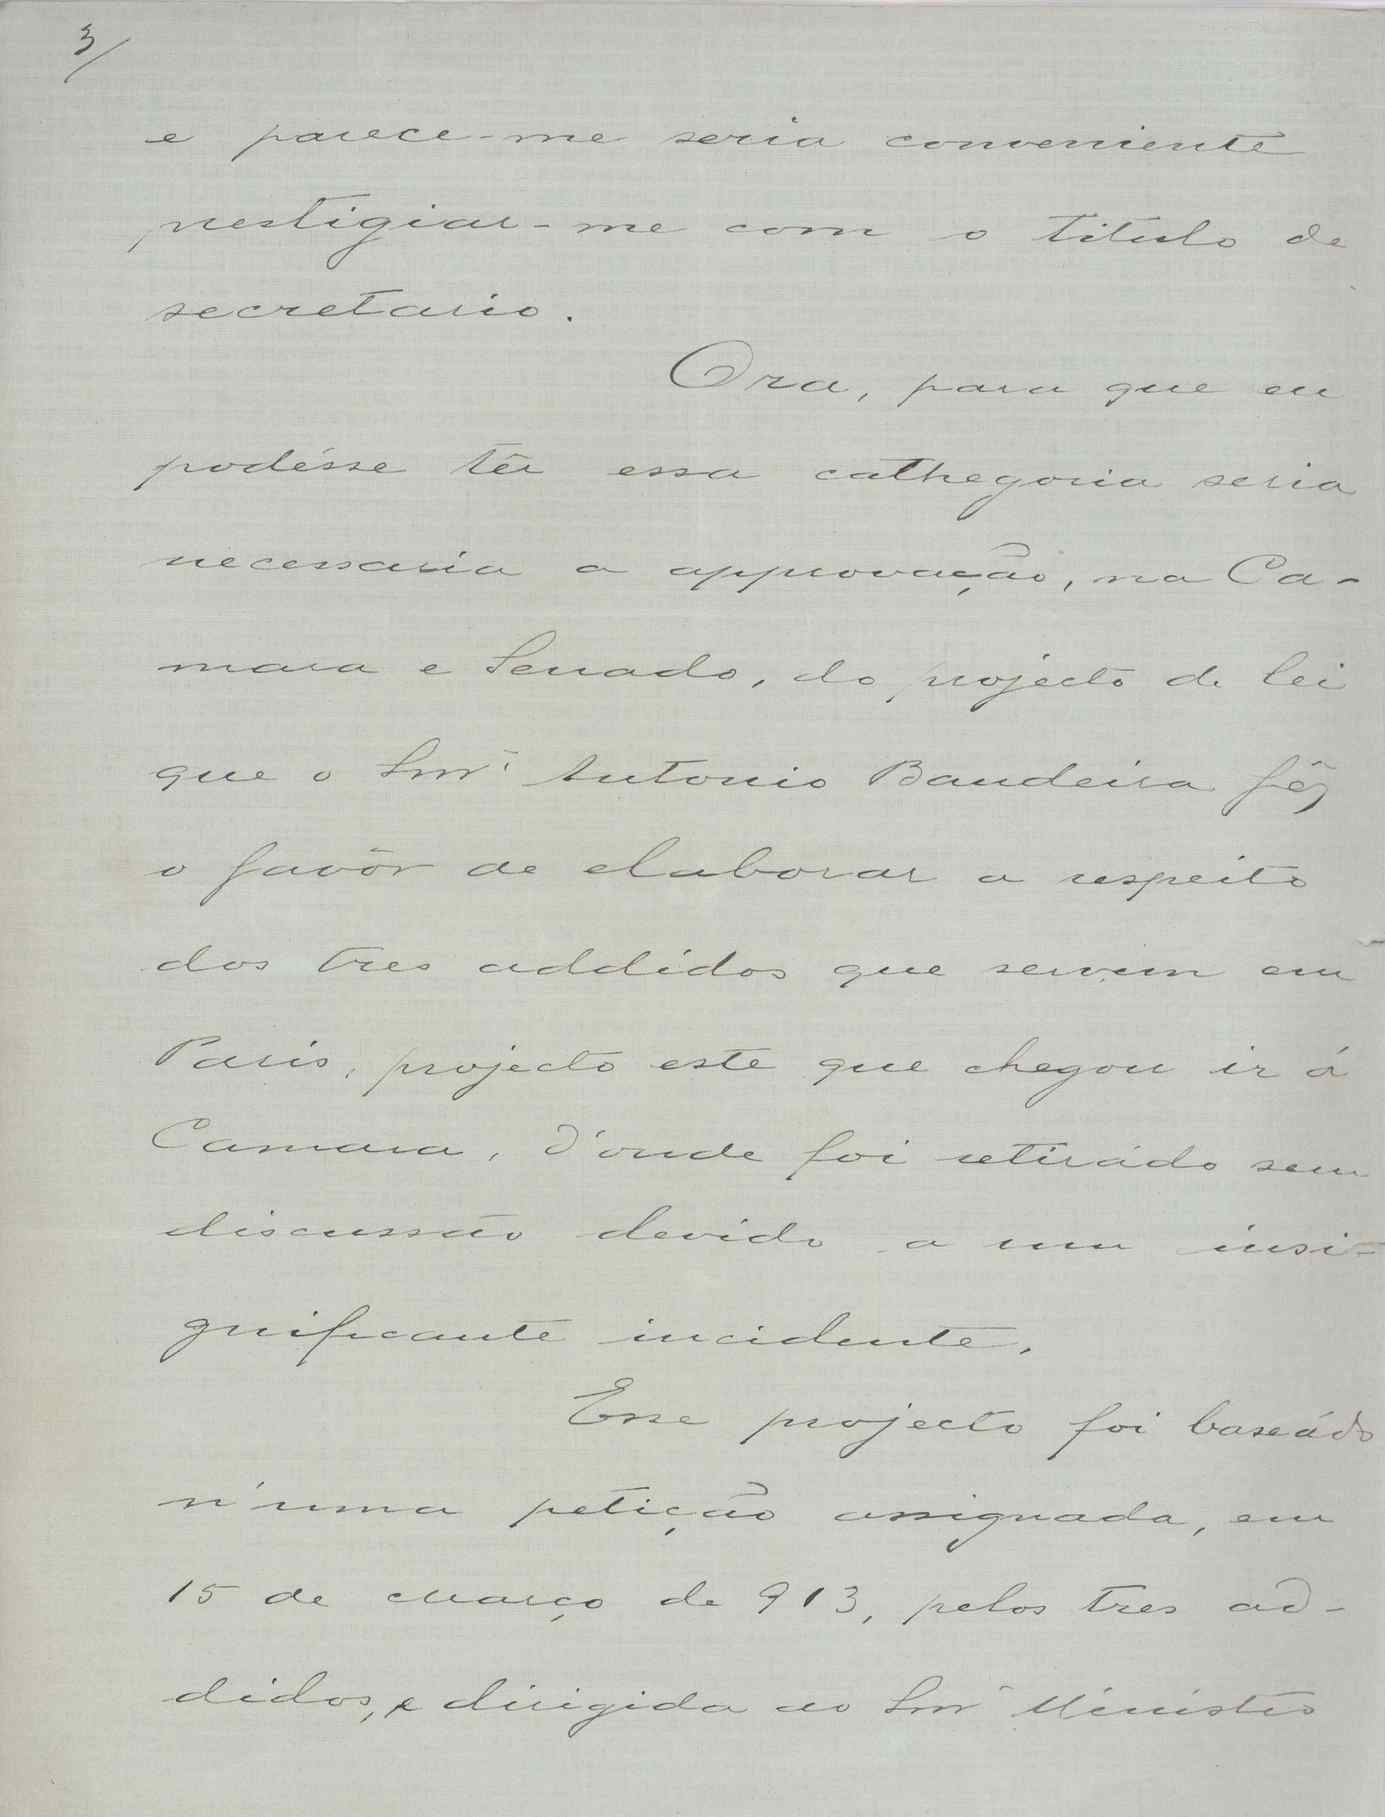 3/
e parece-me seria conveniente
prestigiar-me com o titulo de
secretario.
Ora, para que eu
podésse têr essa cathegoria seria
necessaria a approvação, na Ca-
mara e Senado, do projecto de lei
que o Snr. Antonio Bandeira fêz
o favôr de elaborar a respeito
dos tres addidos que servem em
Paris, projecto este que chegou ir á
Camara, d'onde foi retirádo sem
discussão devido a um insi-
gnificante incidente.
Esse projecto foi baseádo
n'uma petição assignada, em
15 de Março de 913, pelos tres ad-
didos, e dirigida ao Snr Ministro